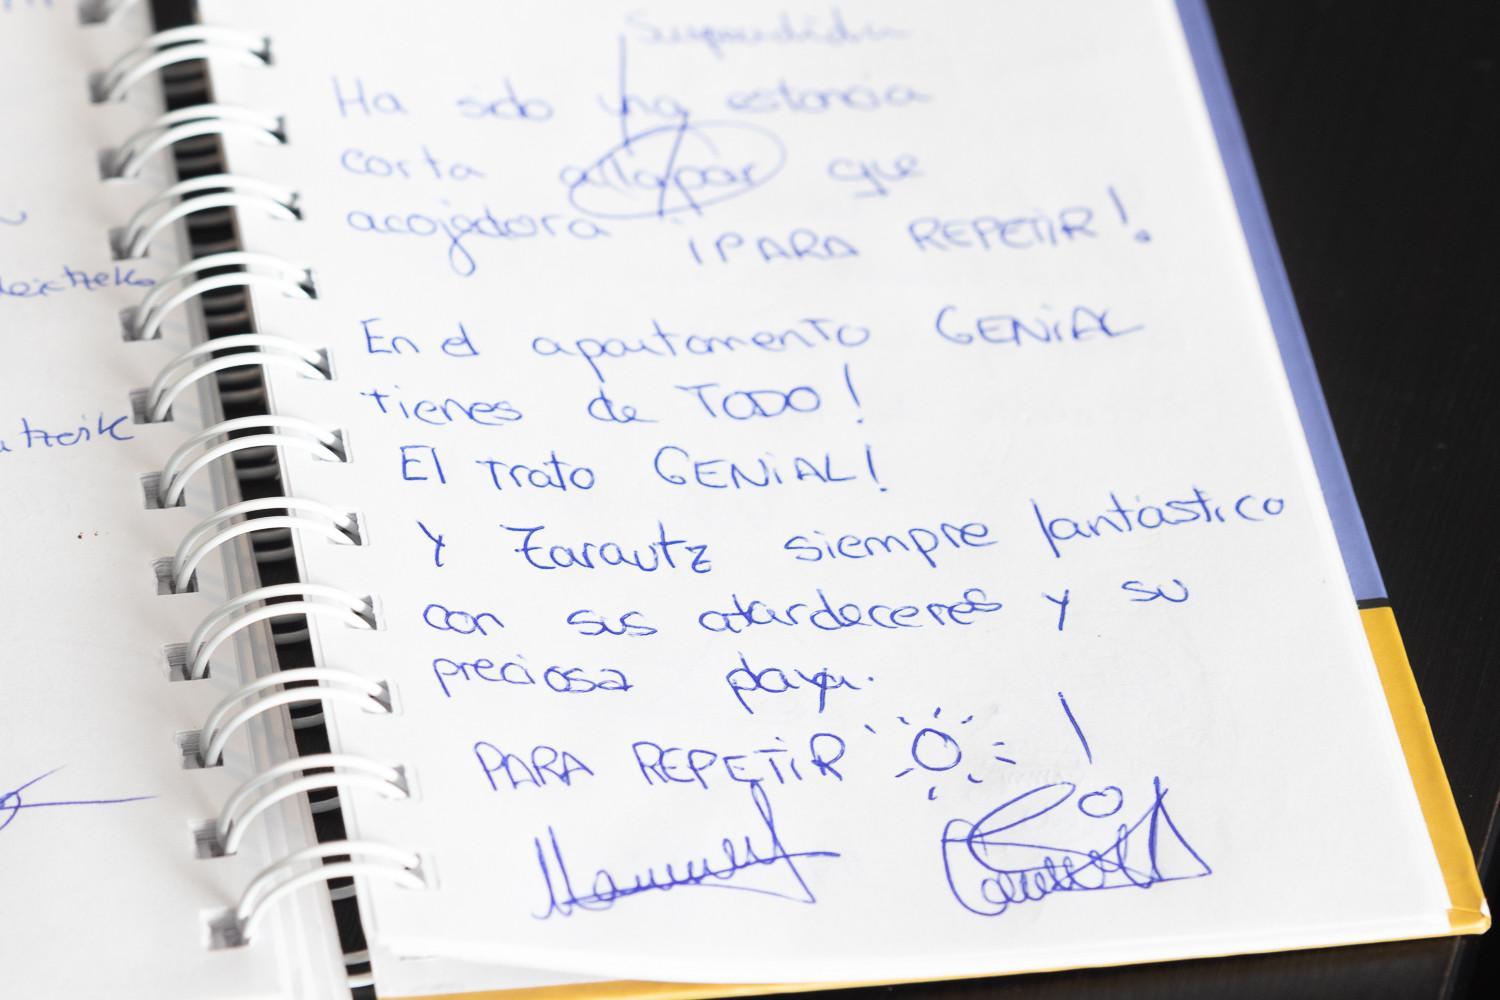 Ha sido una estancia
corta allapar que
acojedora ¡PARA REPETIR!
En el apartamento GENIAL
tienes de TODO!
El trato GENIAL!
Y Zarautz siempre fantástico
con sus atardeceres y su
preciosa playa.
PARA REPETIR !